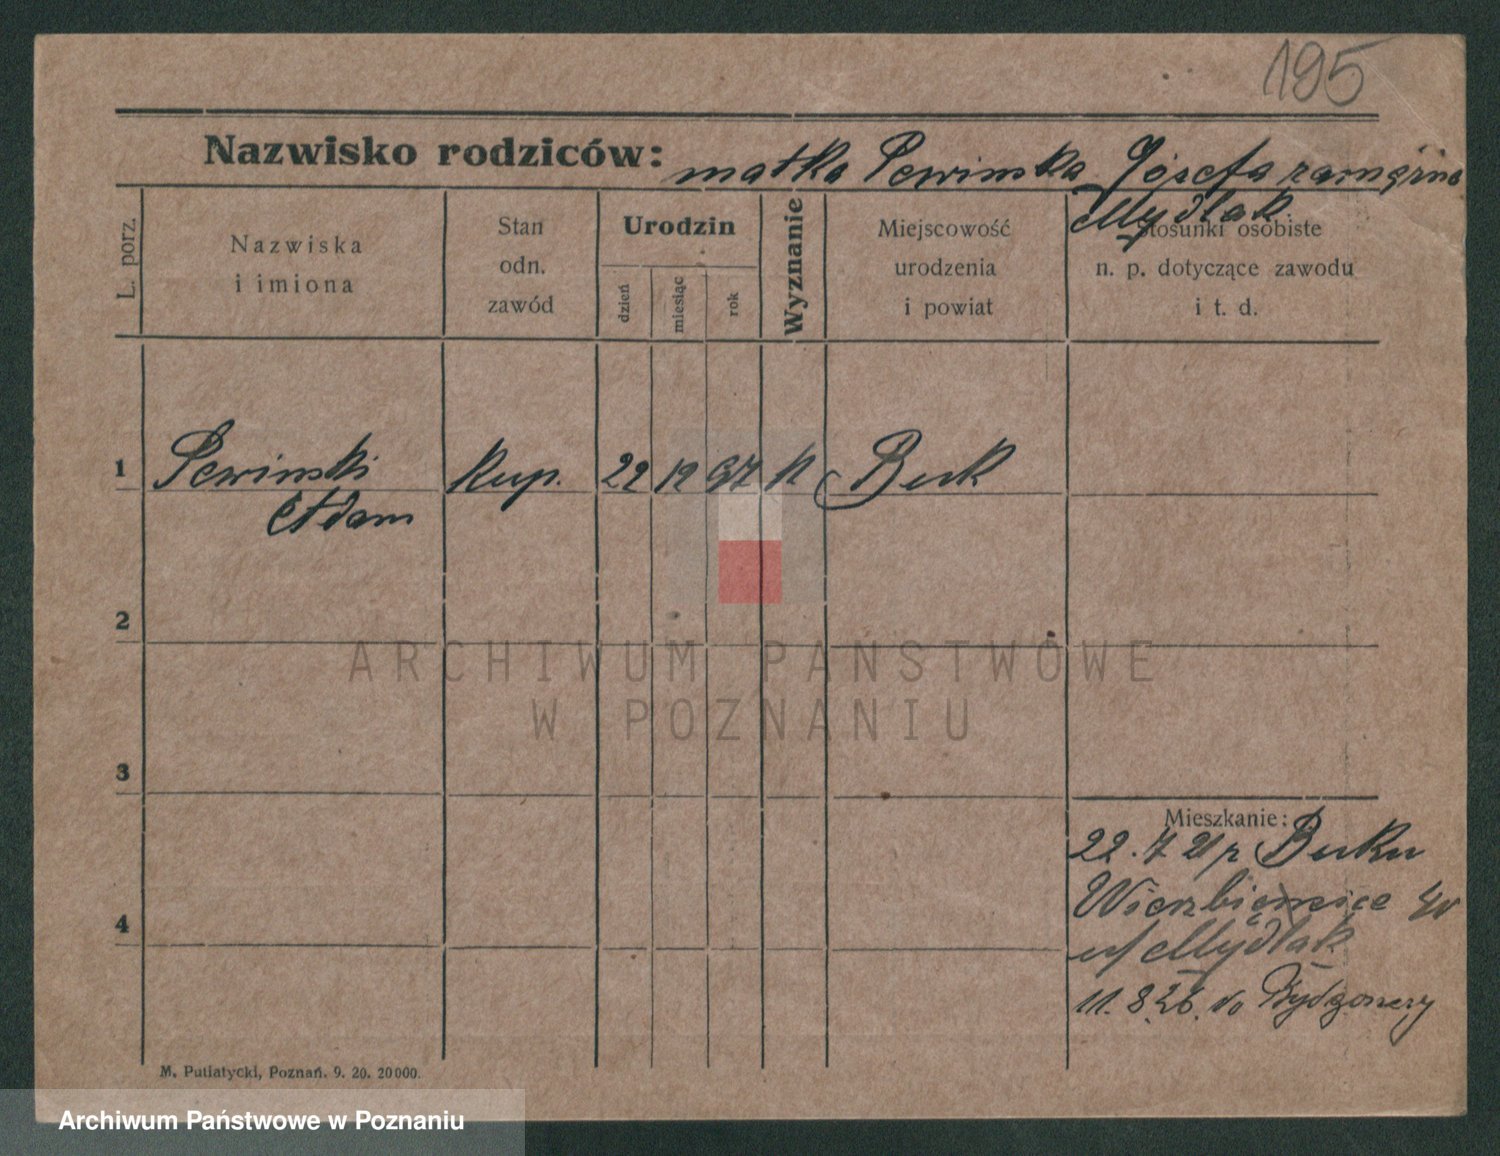 195
Nazwisko rodziców: matka Pewinska Józefa zamężna
Mydlak
L. porz.
Nazwiska
i imiona
Stan
odn.
zawód
Urodzin
dzień
miesiąc
rok
Wyznanie
Miejscowość
urodzenia
i powiat
Stosunki osobiste
n. p. dotyczące zawodu
i t. d.
1 Pewinski Kup. 22 12 97 K Buk
Adam
2
3
4
Mieszkanie:
22. 7 21 z Buku
Wierzbięcice
u/ Mydlak
11. 8. 26. do Bydgoszczy
M. Putiatycki, Poznań. 9. 20. 20000.
ARCHIWUM PAŃSTWOWE
W POZNANIU
Archiwum Państwowe w Poznaniu